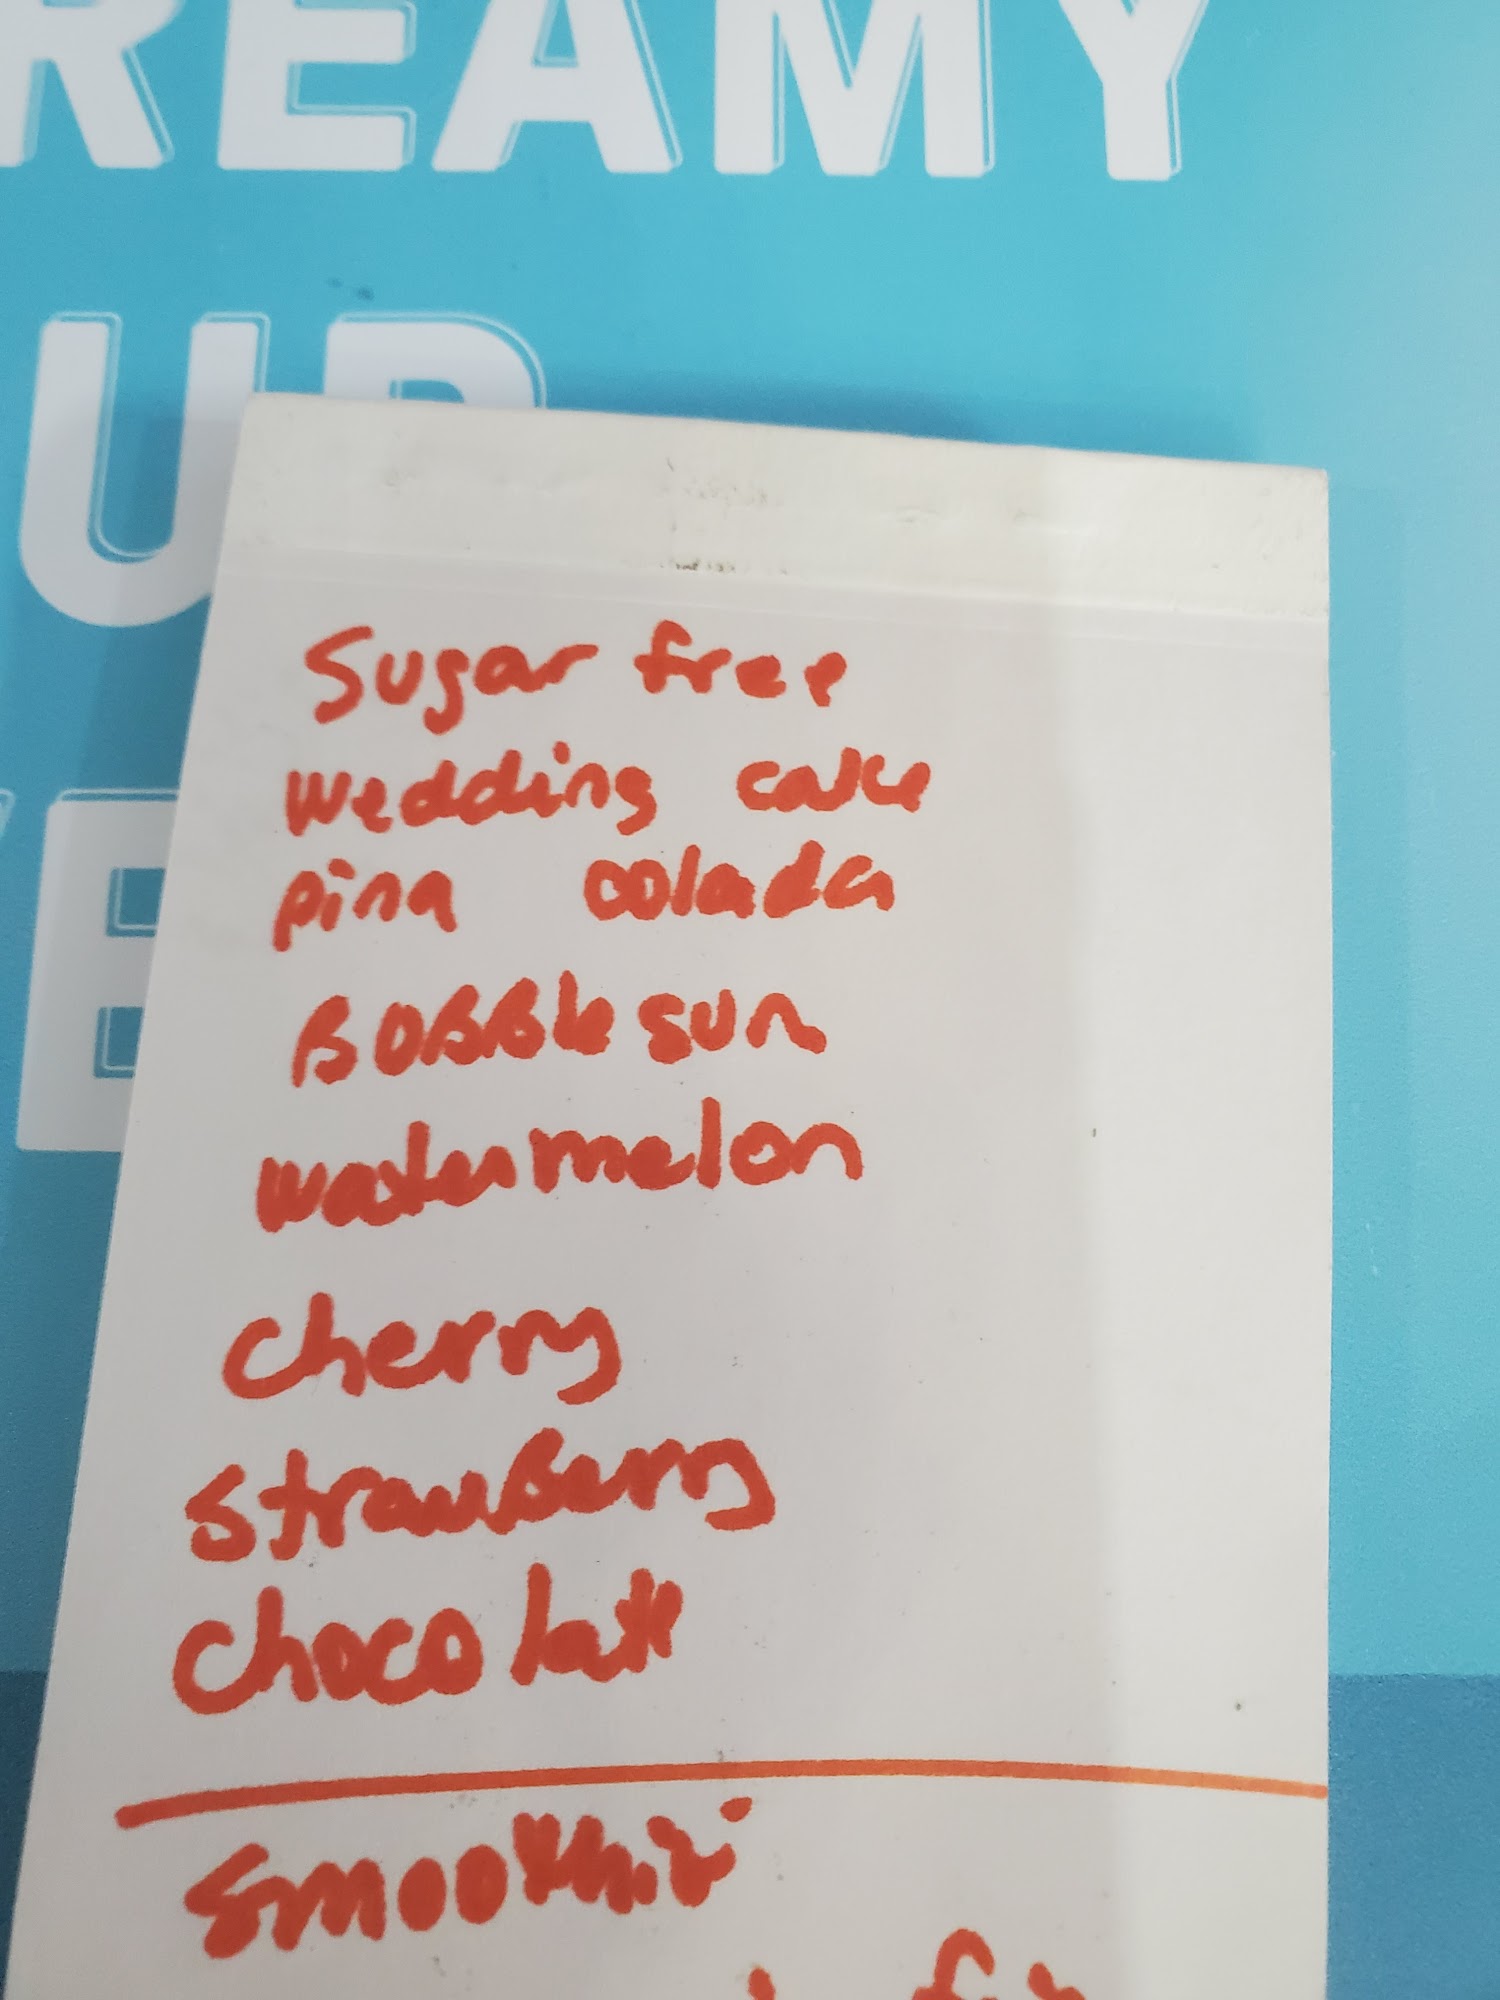 REAMY
UP
Sugar free
wedding cake
pina colada
BOBBle sum
watermelon
cherry
StrawBerry
chocolate
Smoothie